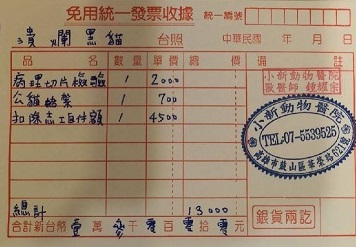 免用統一發票收據 統一編號
潰爛黑貓 台照 中華民國 年 月 日
品名 數量 單價 總價 備註
病理切片檢驗 1 2000
公貓結紮 1 700
扣除志工自付額 4500
小新動物醫院
獸醫師
小新動物醫院
TEL:07-5539525
高雄市鼓山區華榮路621號
總計 13000
合計新台幣 壹 萬 參 千 零 百 零 拾 零 元
銀貨兩訖